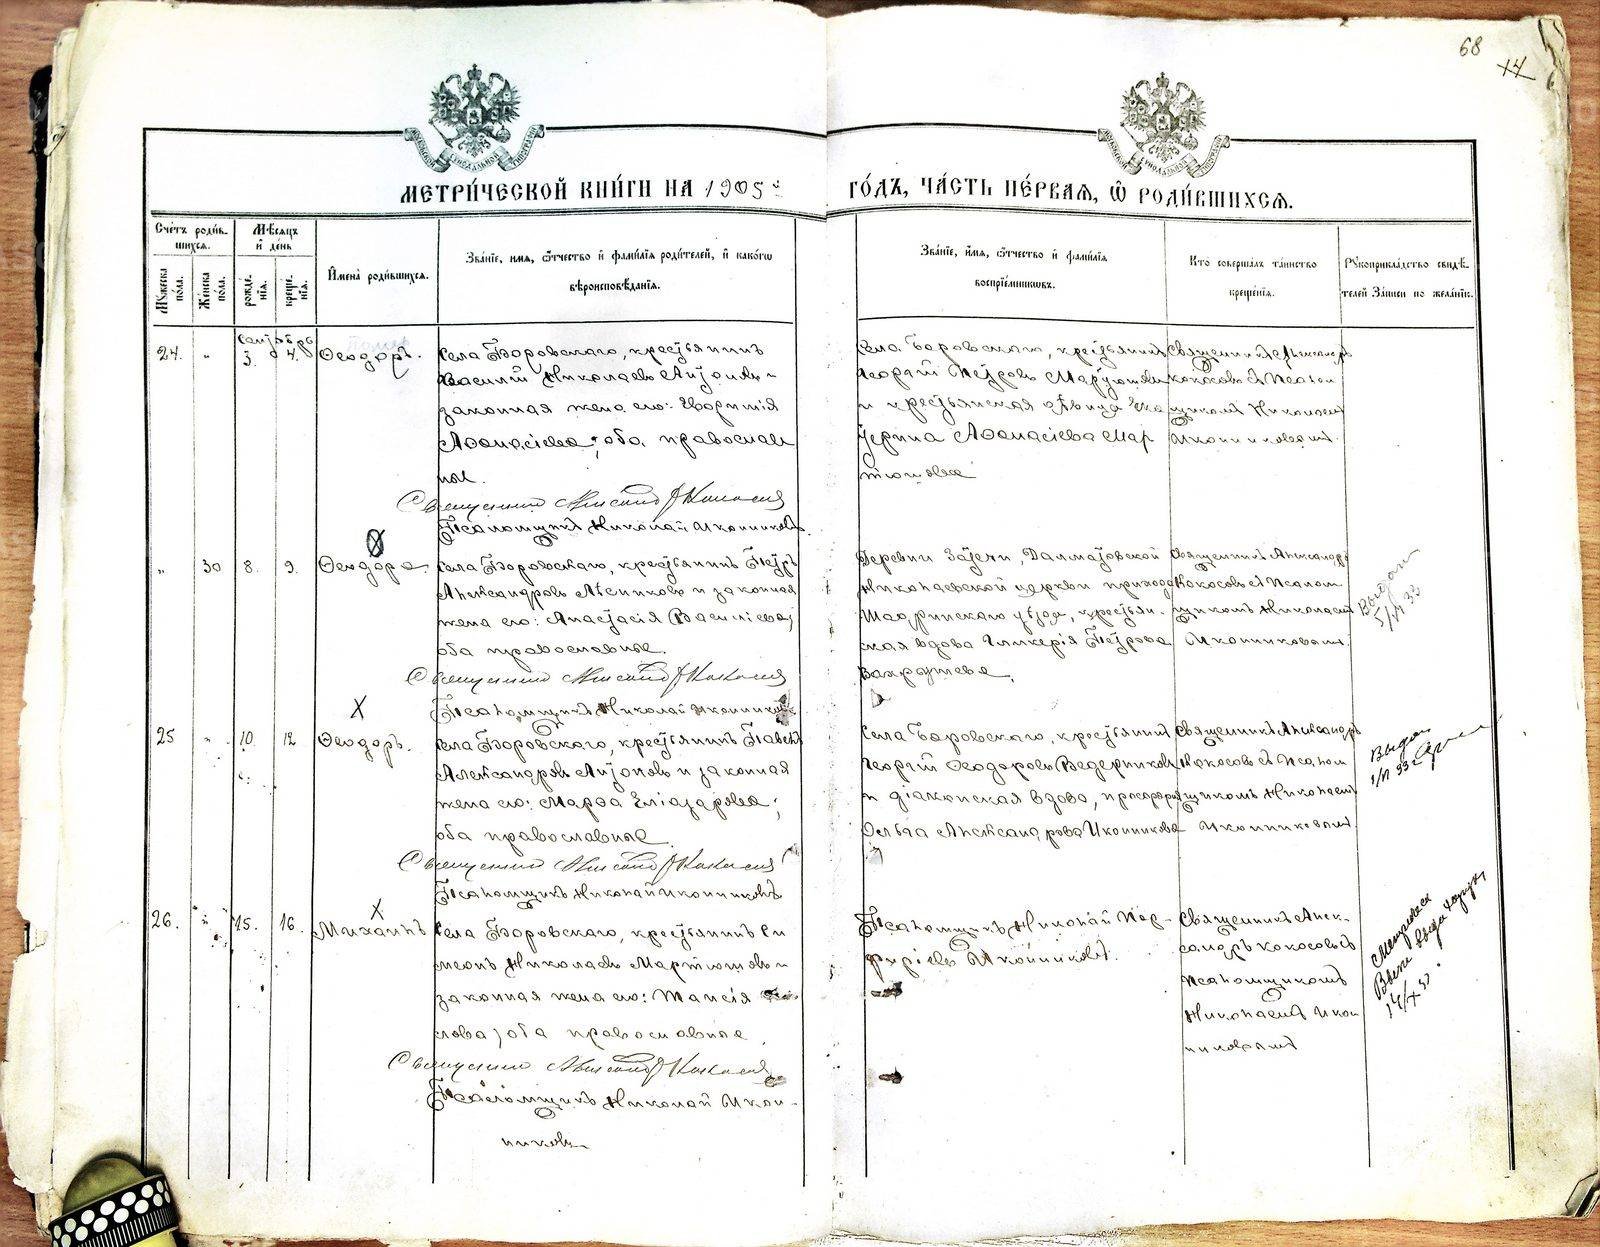 68
14
МЕТРИ́ЧЕСКОЙ КНИ́ГИ НА 1905й ГО́ДЪ, ЧА́СТЬ ПЕ́РВАЯ, Ѡ РОДИ́ВШИХСЯ.
Сче́тъ роди́в-
шихся.
Мѣ́сяцъ
и҆ де́нь
Мꙋ́жеска по́ла.
Же́нска по́ла.
рожде́-
нїя.
креще́-
нїя.
И҆мена̀ роди́вшихся.
Зва́нїе, и҆́мя, ѻ҆́тчество и҆ фами́лїя роди́телей, и҆ како́гѡ
вѣроисповѣ́данїя.
Зва́нїе, и҆́мя, ѻ҆́тчество и҆ фами́лїя
воспрїе́мникѡвъ.
Кто̀ соверша́лъ та́инство
креще́нїя.
Рꙋкоприкла́дство свидѣ́-
телей за́писи по жела́нїю.
Сентябрь
24. „ 3. 4. Ѳеодоръ.
Села Боровскаго, крестьянинъ
Василій Николаевъ Антоновъ и
законная жена его:
Аѳанасіева; оба православ
ные.
Священникъ Александръ Кокосовъ
Псаломщикъ Николай Иконниковъ
Села Боровскаго, крестьянинъ
Георгій Петровъ Мартюшевъ
и крестьянская дѣвица Ека
терина Аѳанасіева Мар
тюшева
Священникъ Александръ
Кокосовъ съ Псалом
щикомъ Николаемъ
Иконниковымъ.
„ 30 8. 9. Ѳеодора.
Села Боровскаго, крестьянинъ Петръ
Александровъ Лѣсниковъ и законная
жена его: Анастасія Василіева;
оба православные.
Священникъ Александръ Кокосовъ
Псаломщикъ Николай Иконниковъ
Деревни Затечи, Далматовской
Николаевской церкви прихода
Шадринскаго уѣзда, крестьян-
ская вдова Гликерія Петрова
Вахрушева.
Священникъ Александръ
Кокосовъ съ Псалом
щикомъ Николаемъ
Иконниковымъ.
Выдан
25 „ 10. 12 Ѳеодоръ.
Села Боровскаго, крестьянинъ Павелъ
Александровъ Антоновъ и законная
жена его: Марѳа Еліазарова;
оба православные
Священникъ Александръ Кокосовъ
Псаломщикъ Николай Иконниковъ
Села Боровскаго, крестьянинъ
Георгій Ѳеодоровъ Ведерниковъ
и діаконская вдова, просфорня
Ольга Александрова Иконникова
Священникъ Александръ
Кокосовъ съ Псалом
щикомъ Николаемъ
Иконниковымъ.
Выдан
26. „ 15. 16. Михаилъ
Села Боровскаго, крестьянинъ Си
меонъ Николаевъ Мартюшевъ и
законная жена его: Таисія
лова; оба православные
Священникъ Александръ Кокосовъ
Псаломщикъ Николай Икон-
никовъ
Псаломщикъ Николай Пор-
фиріевъ Иконниковъ.
Священникъ Алек-
сандръ Кокосовъ съ
Псаломщикомъ
Николаемъ Икон
никовымъ